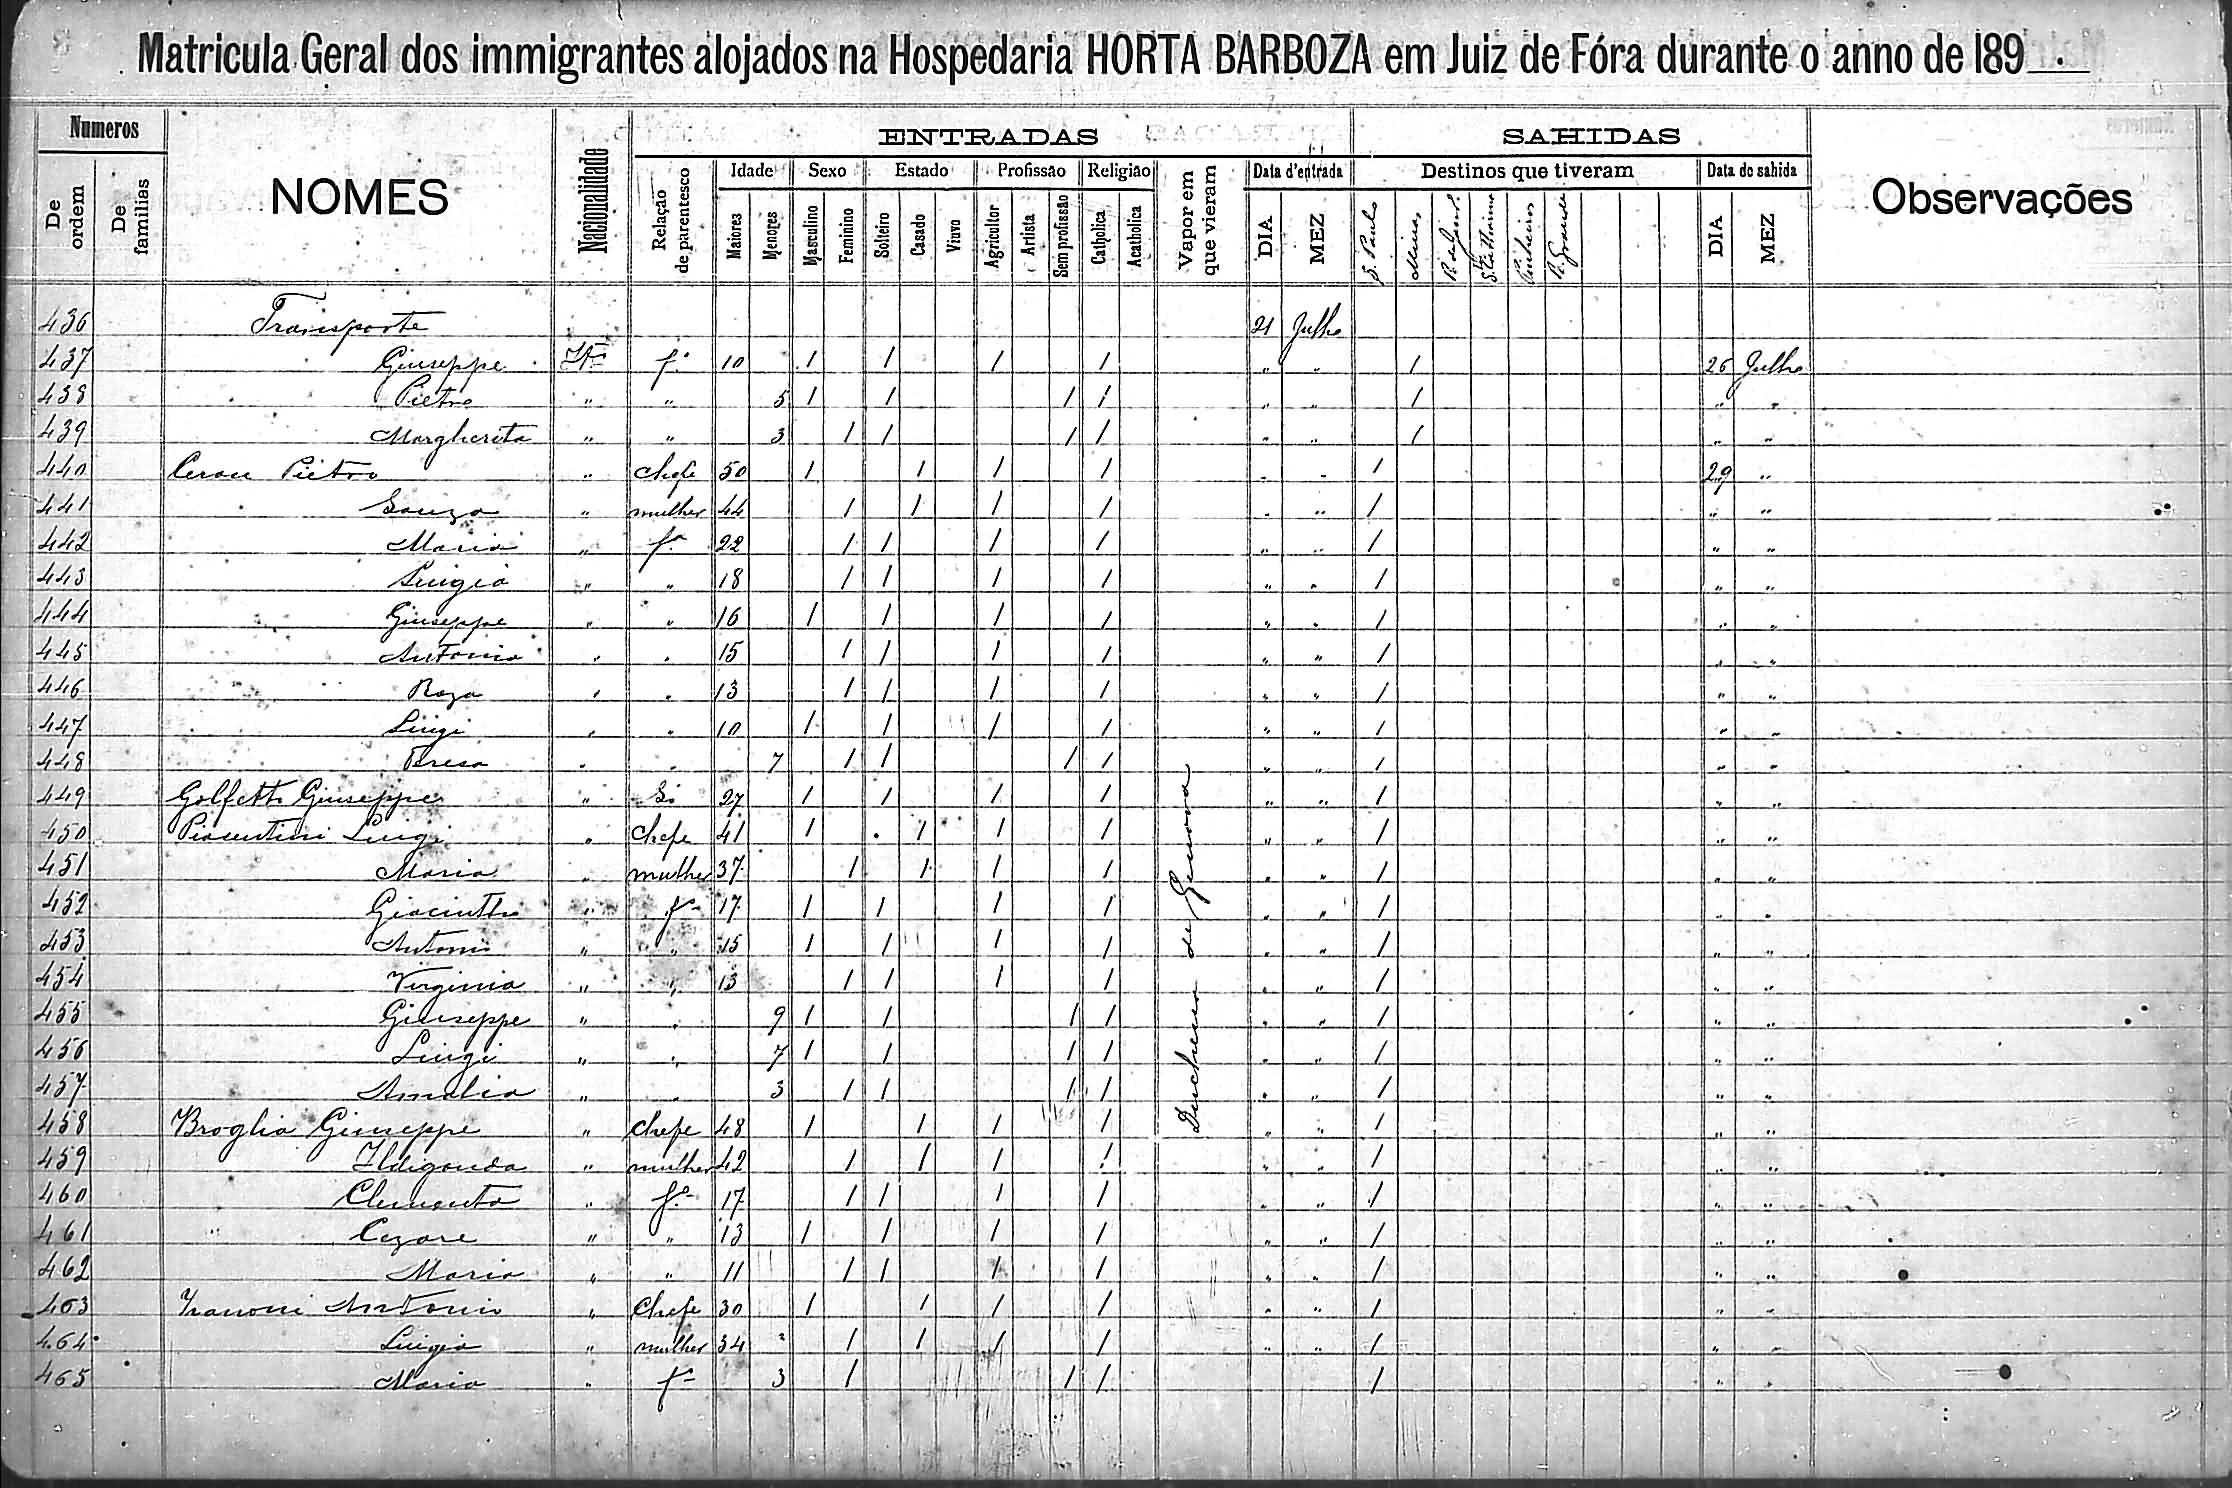 Matricula Geral dos immigrantes alojados na Hospedaria HORTA BARBOZA em Juiz de Fóra durante o anno de 189
Numeros
De ordem
De familias
NOMES
Nacionalidade
ENTRADAS
Relação de parentesco
Idade
Maiores
Menores
Sexo
Masculino
Feminino
Estado
Solteiro
Casado
Viuvo
Profissão
Agricultor
Artista
Sem profissão
Religião
Catholica
Acatholica
Vapor em que vieram
Data d'entrada
DIA
MEZ
SAHIDAS
Destinos que tiveram
S. Paulo
Minas
Data de sahida
DIA
MEZ
Observações
436 Transporte 21 Julho
437 Giuseppe fº 10 1 1 1 1 " " 1 26 Julho
438 Pietro " " 5 1 1 1 1 " " 1 " "
439 Margherita " " 3 1 1 1 1 " " 1 " "
440 Pietro " chefe 50 1 1 1 1 " " 1 29 "
441 " mulher 44 1 1 1 1 " " 1 " "
442 Maria " fª 22 1 1 1 1 " " 1 " "
443 Luigia " " 18 1 1 1 1 " " 1 " "
444 Giuseppe " " 16 1 1 1 1 " " 1 " "
445 Antonia " " 15 1 1 1 1 " " 1 " "
446 Roza " " 13 1 1 1 1 " " 1 " "
447 Luigi " " 10 1 1 1 1 " " 1 " "
448 " " 7 1 1 1 1 " " 1 " "
449 Golfetto Giuseppe " Só 27 1 1 1 1 " " 1 " "
450 Piacentini Luigi " chefe 41 1 1 1 1 " " 1 " "
451 Maria " mulher 37 1 1 1 1 " " 1 " "
452 Giacintho " fº 17 1 1 1 1 " " 1 " "
453 Antonio " " 15 1 1 1 1 " " 1 " "
454 Virginia " " 13 1 1 1 1 " " 1 " "
455 Giuseppe " " 9 1 1 1 1 " " 1 " "
456 Luigi " " 7 1 1 1 1 " " 1 " "
457 Amalia " " 3 1 1 1 1 " " 1 " "
458 Broglia Giuseppe " chefe 48 1 1 1 1 " " 1 " "
459 Ildigonda " mulher 42 1 1 1 1 " " 1 " "
460 Clementa " fª 17 1 1 1 1 " " 1 " "
461 Cezare " " 13 1 1 1 1 " " 1 " "
462 Maria " " 11 1 1 1 1 " " 1 " "
463 Antonio " Chefe 30 1 1 1 1 " " 1 " "
464 Luigia " mulher 34 1 1 1 1 " " 1 " "
465 Maria " fª 3 1 1 1 1 " "
de Genova